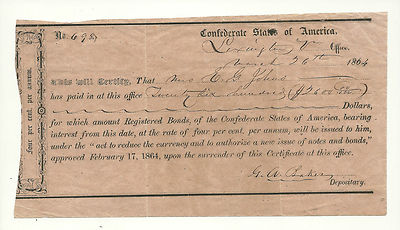 No. 698
Confederate States of America.
Lexington Va Office.
March 26th 1864
This will Certify, That Mrs C. G. Johns
has paid in at this office Twenty Six hundred ($2600
Dollars,
for which amount Registered Bonds, of the Confederate States of America, bearing
interest from this date, at the rate of four per cent. per annum, will be issued to him,
under the "act to reduce the currency and to authorize a new issue of notes and bonds,"
approved February 17, 1864, upon the surrender of this Certificate at this office.
Depositary.
four per cent. per annum.